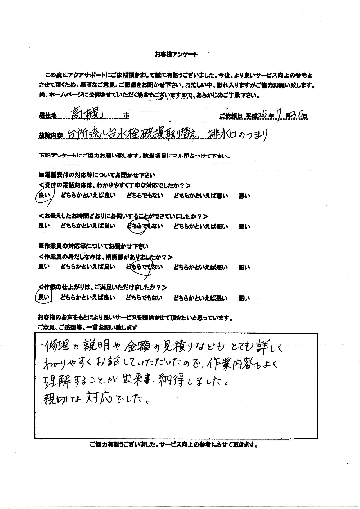 お客様アンケート
この度はアクアサポートにご依頼頂きまして誠に有難うございました。今後、より良いサービス向上の参考と
させて頂くため、率直なご意見、ご感想をお聞かせ下さい。お忙しい中、恐れ入りますがご協力お願い致します。
尚、ホームページに公開させていただく場合がございますので、あらかじめご了承下さい。
居住地 高槻 市 ご依頼日 平成
依頼内容 台所流し台水栓 取り替え 排水口のつまり
下記アンケートにご協力お願い致します。該当項目に丸印をつけて下さい。
■電話受付の対応等についてお聞かせ下さい
<受付の電話対応は、わかりやすく丁寧な対応でしたか?>
良い どちらかといえば良い どちらでもない どちらかといえば悪い 悪い
<お伝えしたお時間どおりにお伺いすることができていましたか?>
良い どちらかといえば良い どちらでもない どちらかといえば悪い 悪い
■作業員の対応等についてお聞かせ下さい
<作業員の身だしなみは、清潔感がありましたか?>
良い どちらかといえば良い どちらでもない どちらかといえば悪い 悪い
<作業の仕上がりは、ご満足いただけましたか?>
良い どちらかといえば良い どちらでもない どちらかといえば悪い 悪い
お客様のお声をもとにより良いサービスを提供させて頂きたいと思っています。
ご意見、ご感想等、一言お願い致します
修理の説明や金額の見積りなどもとても詳しく
わかりやすくお話していただいたので、作業内容もよく
理解することが出来、納得しました。
親切な対応でした。
ご協力有難うございました。サービス向上の参考にさせて頂きます。